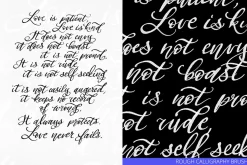 Love is patient,
Love is kind.
It does not envy,
it does not boast
it is not proud.
It is not rude
it is not self seeking
it is not easily angered,
it keeps no record
of wrongs.
It always protects.
Love never fails.
Love is kind
It does not envy
not boast
it is not pro
not rude
not self seek
ROUGH CALLIGRAPHY BRUSH